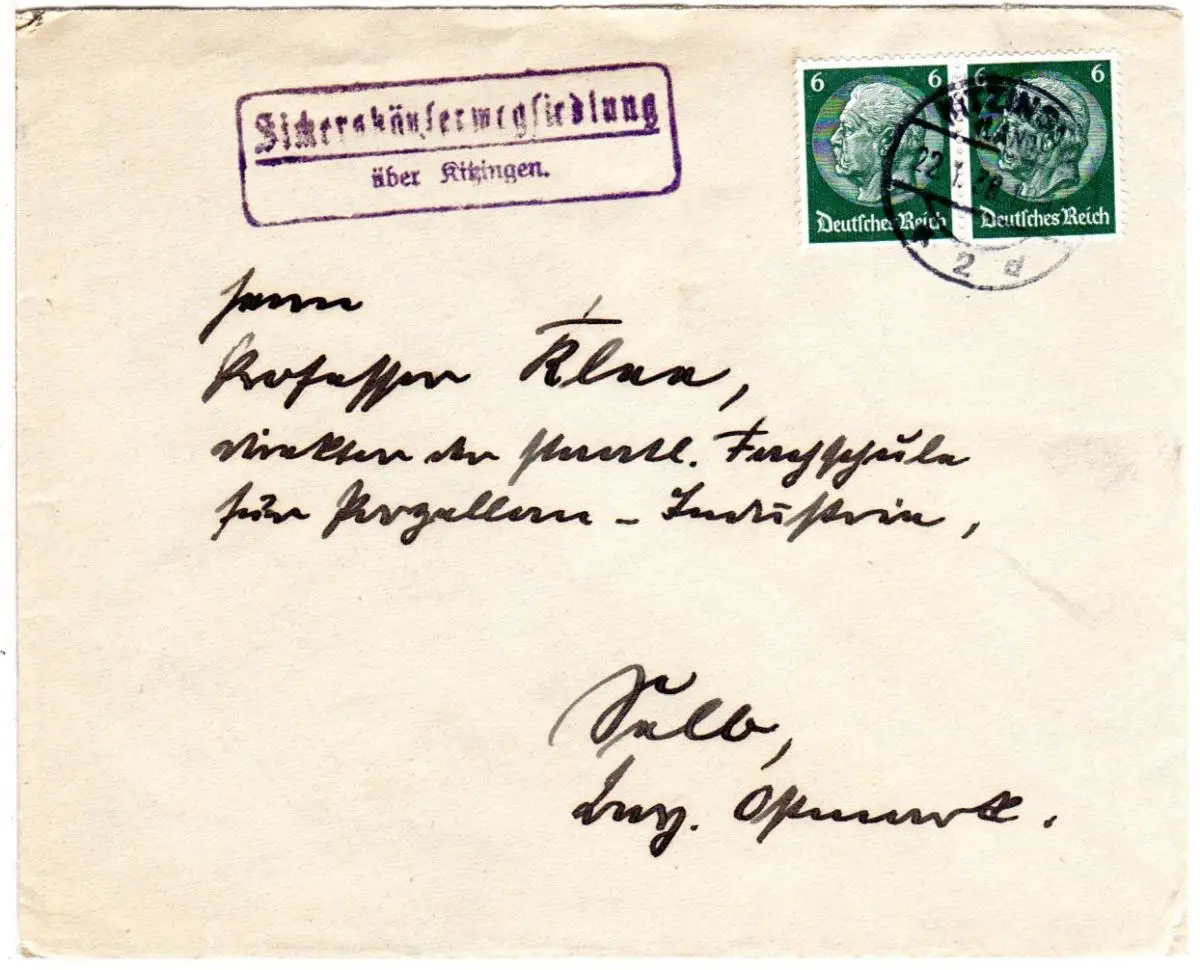 Sickershäuserwegsiedlung
über Kitzingen.
6 6 6 6
KITZINGEN
22
2 d
Deutsches Reich Deutsches Reich
Herrn
Professor Klee,
Direktor der staatl. Fachschule
für Porzellan - Industrie,
Selb,
Bay. Ostmark.